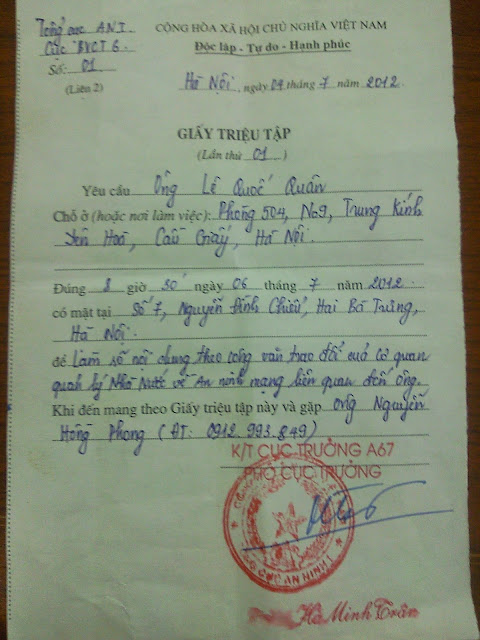 Tổng cục AN I.
CỘNG HÒA XÃ HỘI CHỦ NGHĨA VIỆT NAM
Cục BVCT 6.
Độc lập - Tự do - Hạnh phúc
Số: 01
(Liên 2)
Hà Nội, ngày 04 tháng 7 năm 2012.
GIẤY TRIỆU TẬP
(Lần thứ 01)
Yêu cầu Ông Lê Quốc Quân
Chỗ ở (hoặc nơi làm việc): Phòng 504, No9, Trung Kính
Yên Hoà, Cầu Giấy, Hà Nội.
Đúng 8 giờ 30' ngày 06 tháng 7 năm 2012
có mặt tại Số 7, Nguyễn Đình Chiểu, Hai Bà Trưng,
Hà Nội.
để Làm số nội dung theo công văn trao đổi của Cơ quan
quản lý Nhà Nước về An ninh mạng liên quan đến ông.
Khi đến mang theo Giấy triệu tập này và gặp ông Nguyễn
Hồng Phong (ĐT: 0912.993.849)
K/T CỤC TRƯỞNG A67
PHÓ CỤC TRƯỞNG
CỤC AN NINH I
Hà Minh Trân